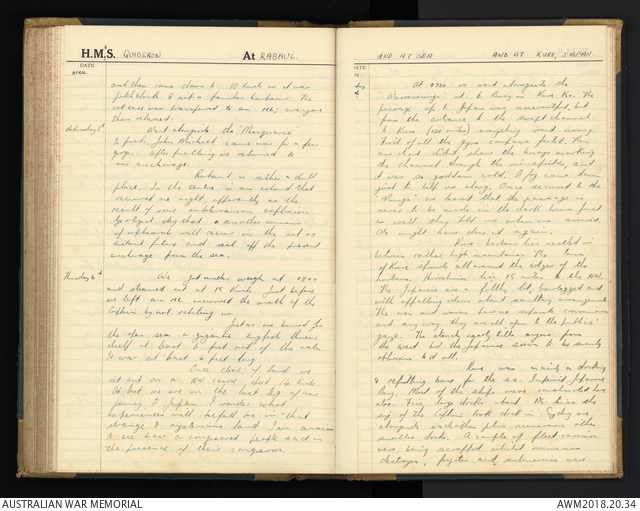 H.M.S. QUIBERON At RABAUL.
DATE
APRIL
and then came down to 10 knots as it was
pitch black & not a familiar harbour. The
cot case was transferred to an ML; everyone
then returned.
Wednesday 3rd
Went alongside the
to fuel. John Michell came over for a few
gags. After fuelling we returned to
our anchorage.
Rabaul is rather a dull
place. In the centre is an island that
occurred one night, apparently as the
result of some subterranean explosion.
Geologists say that a another similar
of upheaval will occur in the not so
distant future and seal off the present
anchorage from the sea.
Thursday 4th
We got under weigh at 0800
and steamed out at 15 knots. Just before
we left an ML incurred the wrath of the
Captain by not saluting us.
Just as we turned for
the open sea a gigantic kingfish threw
itself at least 6 feet out of the water.
It was at least 6 feet long.
Once clear of land we
set out on a NW course, speed 16 knots.
At last we are on the last leg of our
journey to Japan. I wonder what
experiences will befall me in that
strange & mysterious land. I am anxious
to see how a conquered people react in
the presence of their conquerors.
AND AT SEA AND AT KURE, JAPAN.
DATE
At 2000 we went alongside the
at Buoy in Kure Ko. The
passage up to Japan was uneventful, but
from the entrance to the swept channel
to Kure (120 miles) everything went wrong.
First of all the gyro compass failed. Then
our chart didn't show the buoys marking
the channel through the minefields, and
it was so goddam cold. A fog came down
just to help us along. Once secured to the
we learnt that the passage is
never to be made in the dark hours and
so well they told us when we arrived.
We might have done it again.
Kure harbour lies nestled in
between rather high mountains. The town
of Kure spreads all round the edges of the
harbour. Hiroshima lies 15 miles to the NW.
The Japanese are a filthy lot, bowlegged and
with appalling ideas about sanitary arrangements.
The men and women have no separate conveniences
and any way they are all open to the publics'
gaze. The stench nearly kills anyone from
the west but the Japanese seem to be
oblivious to it all.
Kure was mainly a docking
& refitting base for the ex. Imperial Japanese
Navy. Most of the ships were
also. Five huge docks about 1½ times the
size of the Captain Cook dock in Sydney are
alongside each other plus numerous other
smaller docks. A couple of fleet carriers
were being scrapped whilst numerous
destroyers, frigates and submarines were
AUSTRALIAN WAR MEMORIAL
AWM2018.20.34